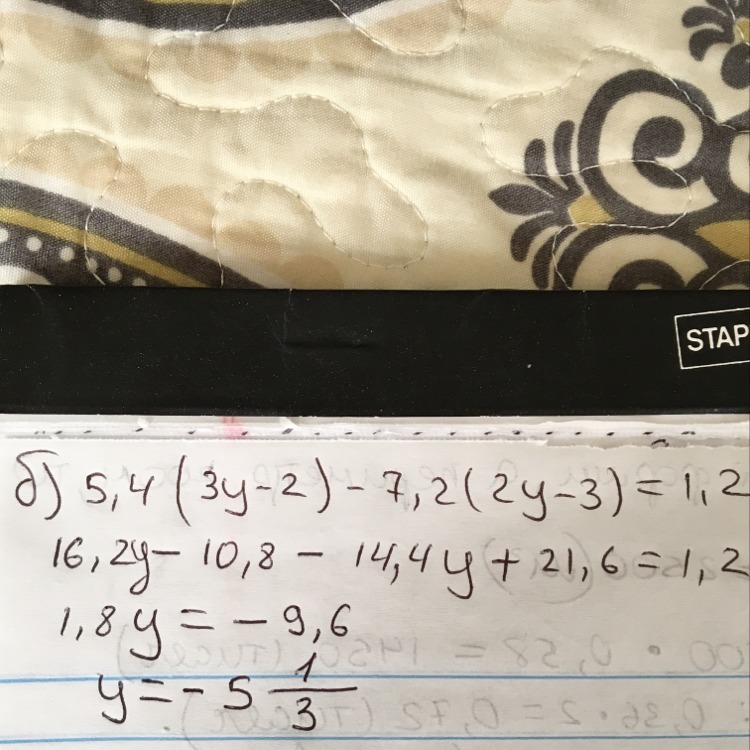 STAP
б) 5,4(3y-2)-7,2(2y-3)=1,2
16,2y-10,8-14,4y+21,6=1,2
1,8y=-9,6
y=-5 1/3